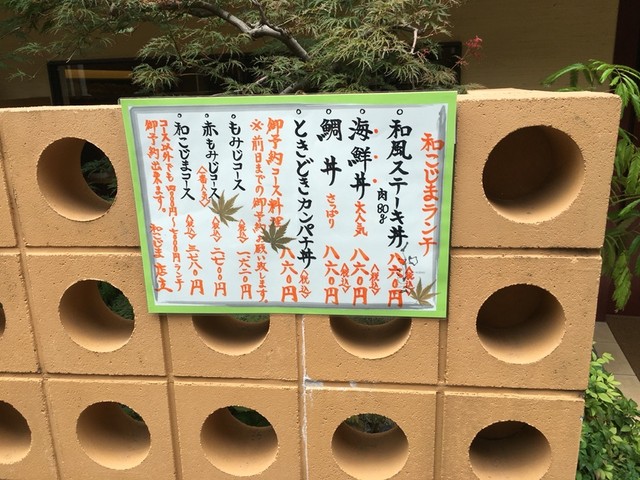 和こじまランチ
和風ステーキ丼 八六〇円
肉80g
(税込)
海鮮丼 大人気 八六〇円
(税込)
鯛丼 さっぱり 八六〇円
(税込)
ときどきカンパチ丼 八六〇円
(税込)
御予約コース料理
※前日までの御予約お願い致します。
もみじコース 一六二〇円
(税込)
赤もみじコース 二七〇〇円
(一番人気)
(税込)
和こじまコース 三七八〇円
(税込)
コース以外でも
御予約出来ます。
和こじま 店主